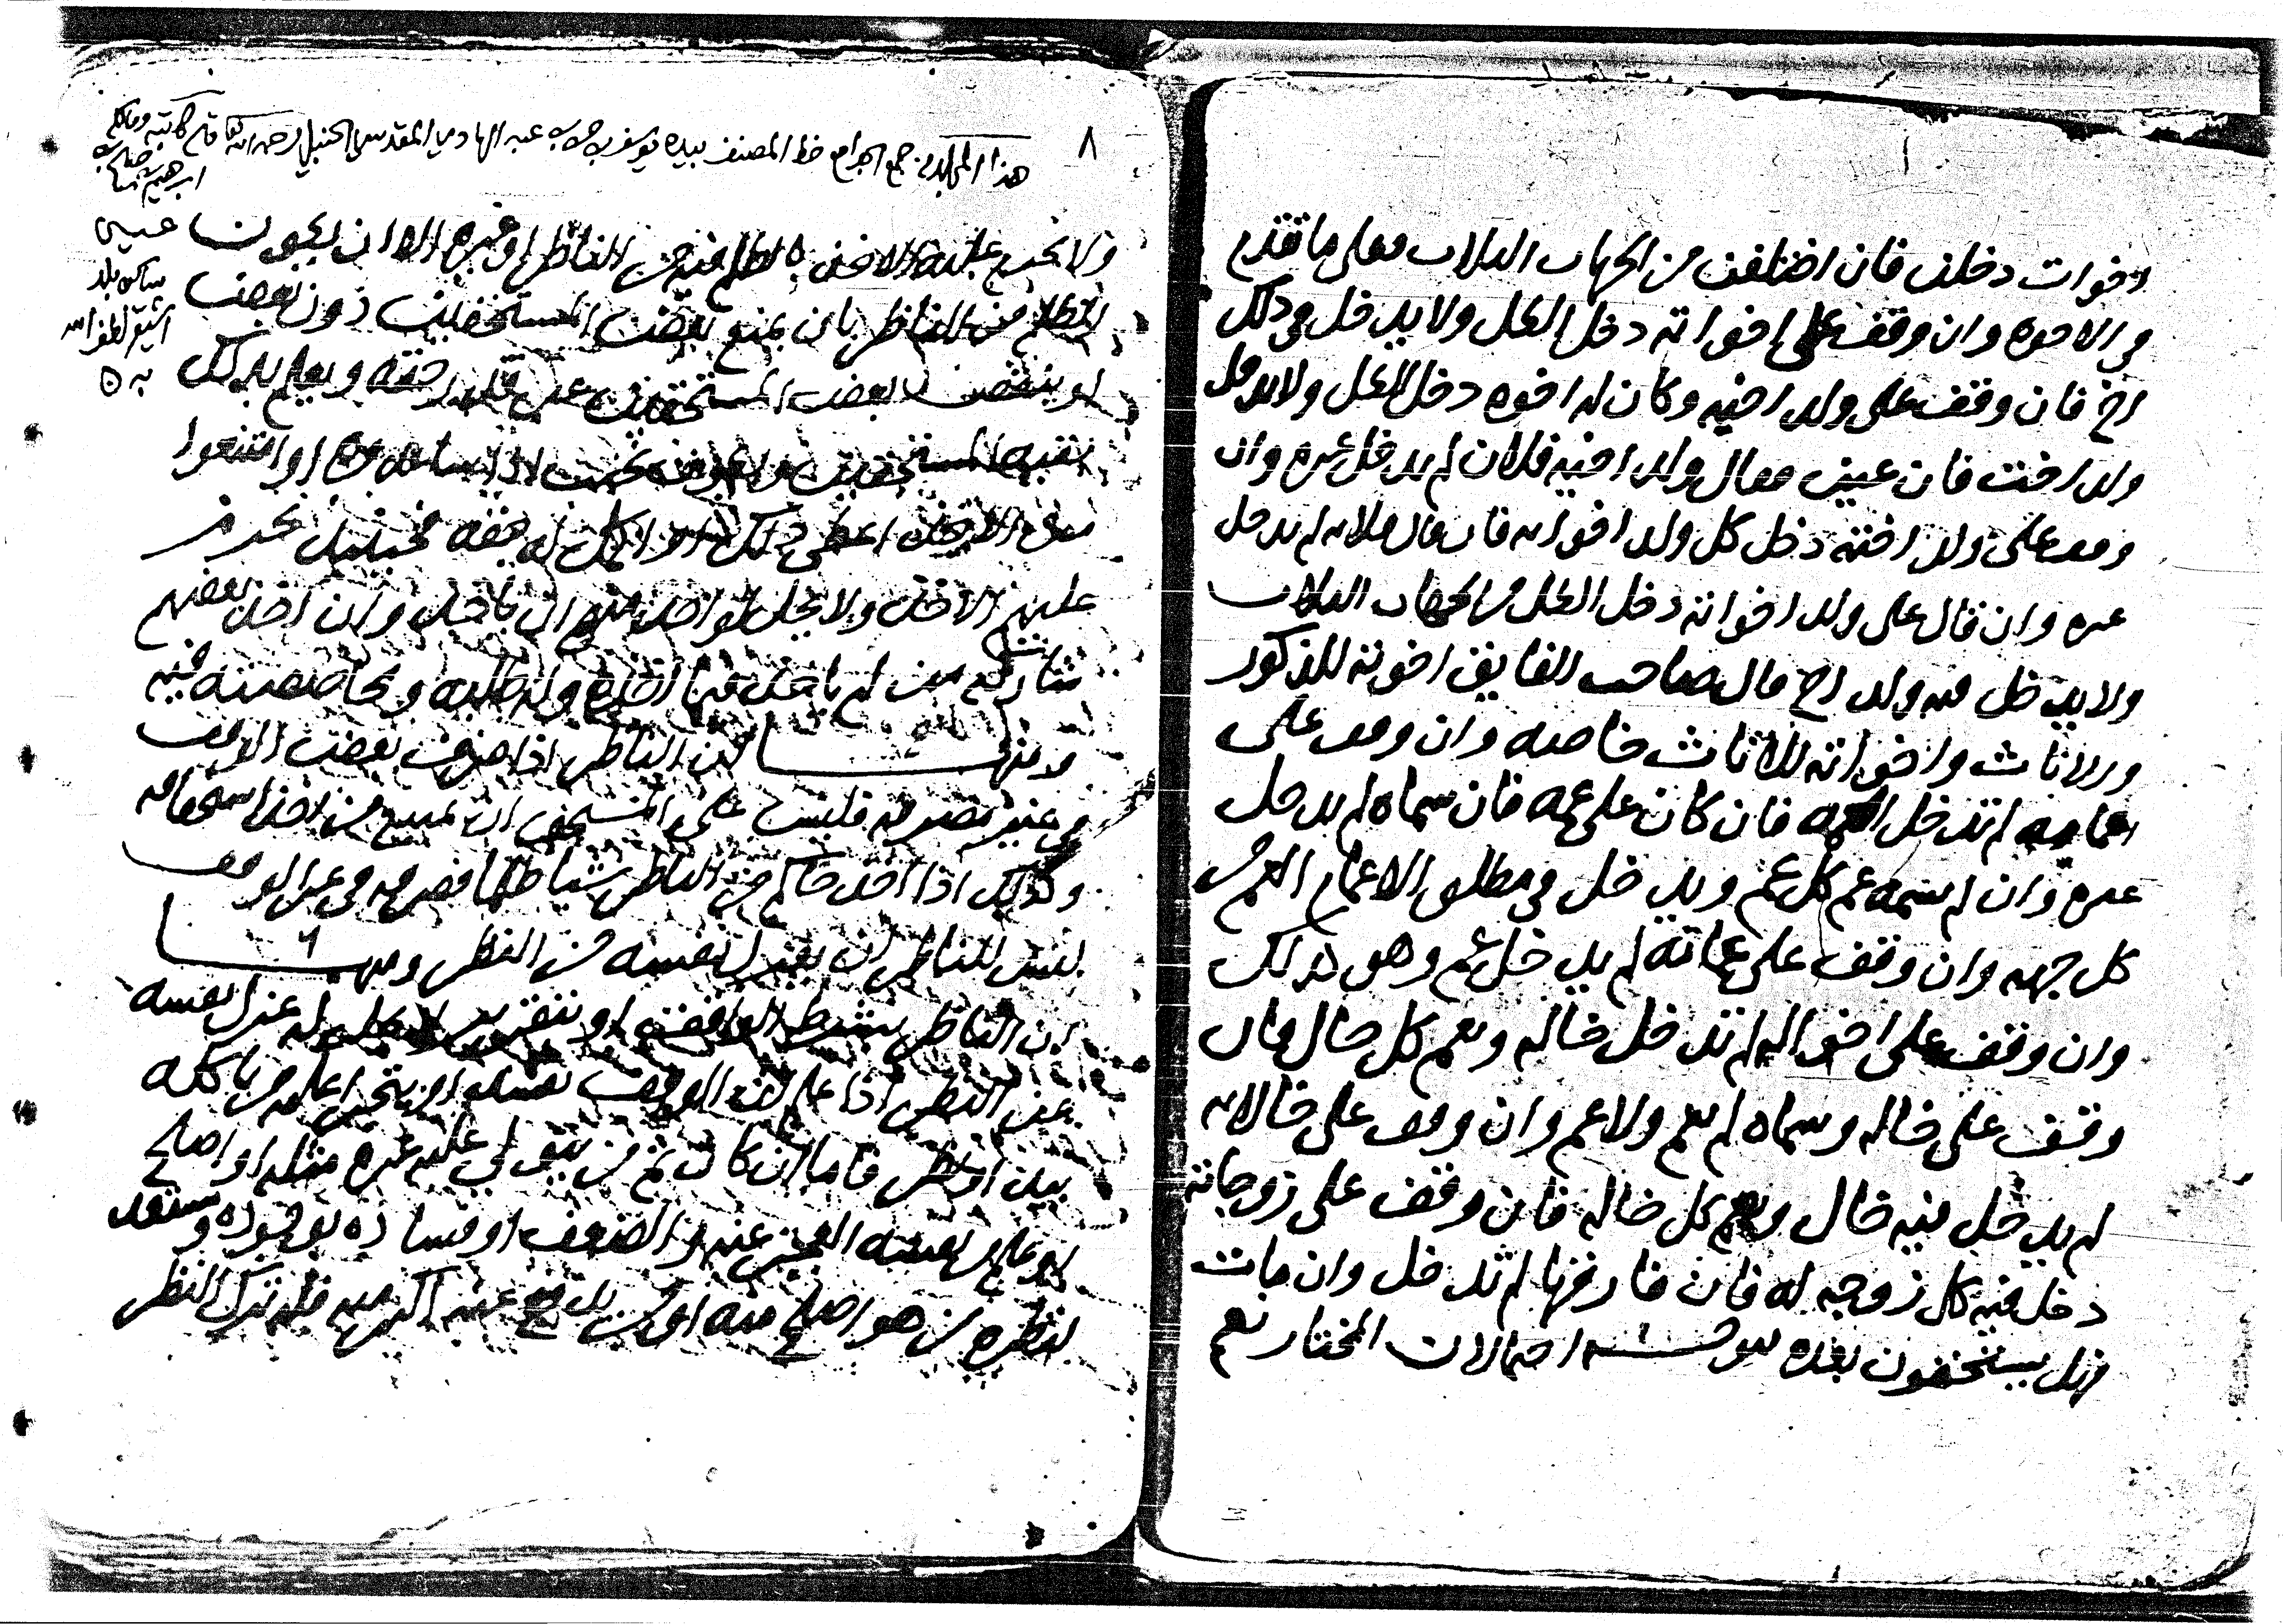 اخوات دخلن فان اختلفن من الجهات الثلاث فعلى ما تقدم
في الاخوة وان وقف على اخواته دخل الكل ولا يدخل في ذلك
اخ فان وقف على ولد اخيه وكان له اخوة دخل الكل ولا يدخل
ولد اخت فان عين فقال ولد اخيه فلان لم يدخل غيره وان
وقف على ولد اخته دخل كل ولد اخواته فان قال فلانه لم يدخل
غيره وان قال على ولد اخواته دخل الكل من الجهات الثلاث
ولا يدخل فيه ولد اخ قال صاحب الفايق اخوته للذكور
والاناث واخواته للاناث خاصه وان وقف على
اعمامه لم تدخل العمه فان كان على عمه فان سماه لم يدخل
غيره وان لم يسمه عم كل عم ويدخل في مطلق الاعمام العم من
كل جهه وان وقف على عماته لم يدخل عم وهو كذلك
وان وقف على اخواله لم تدخل خاله ويعم كل خال فان
وقف على خاله وسماه لم يعم والا عم وان وقف على خالاته
لم يدخل فيه خال ويعم كل خاله فان وقف على زوجاته
دخل فيه كل زوجه له فان فارقها لم تدخل وان مات
فهل يستحقون بعده احتمالات المختار نعم
٨
هذا المجلد من جمع الجوامع خط المصنف بيده يوسف بن حسن بن عبد الهادي المقدسي الحنبلي رحمه الله تعالى قاله كاتبه ومالكه
ابرهيم بن صالح بن
عيسى
ساكن بلد
اشيقر لطف الله
به
ولا يجب عليه الاخذ من الناظر او غيره الا ان يكون
الظلم من الناظر بان يمنع بعض المستحقين دون بعض
او ينقص بعض المستحقين عن قدر حقه ويعلم بذلك
بقية المستحقين او امتنعوا
من الاخذ اعطى ذلك او اكمل له حقه فحينئذ يحرم
عليهم الاخذ ولا يحل لواحد منهم ان ياخذ وان اخذ بعضهم
شاركه من لم ياخذ فيما اخذه وله طلبه ومخاصمته فيه
ومنها ان الناظر اذا صرف بعض الوقف
في غير مصرفه فليس على المستحق ان يمتنع من اخذ استحقاقه
وكذلك اذا اخذ حاكم من الناظر شيا ظلما فصرفه في غير الوقف
ليس للناظر ان يعزل نفسه من النظر ومنها
ان الناظر بشرط الواقف او بتقرير له عزل نفسه
عن النظر اذا علم ان الوقف من ياكله
بيد او نظر فاما ان كان ثم من يتولى عليه غيره مثله او اصلح
او علم من نفسه العجز عنه والضعف او فساده بوجوده
لنظره من هو اصلح منه او من يدفع عنه اكثر منه فله ترك النظر